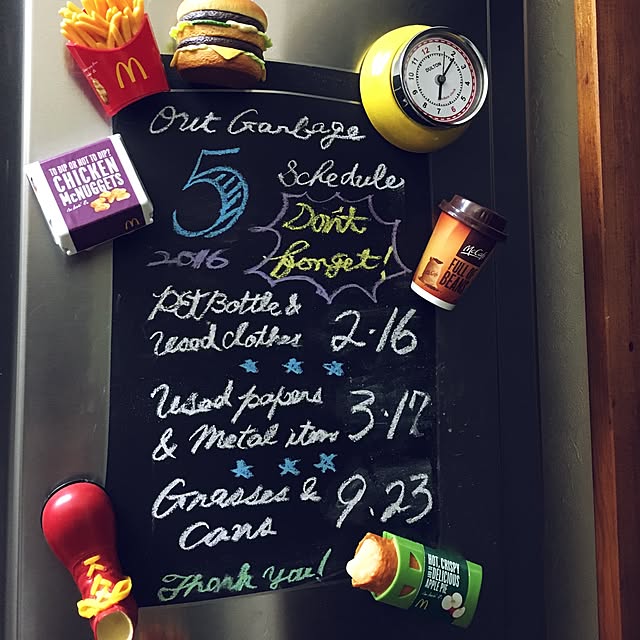 Out Garbage
5
Schedule
2016
Don't
forget!
PET Bottle &
Used clothes
2.16
Used papers
& Metal item
3.17
Grasses &
Cans
9.23
Thank you!
TO DIP OR NOT TO DIP?
CHICKEN
McNUGGETS
DULTON
McCafé
FULL
BEAN
HOT, CRISPY
DELICIOUS
APPLE PIE